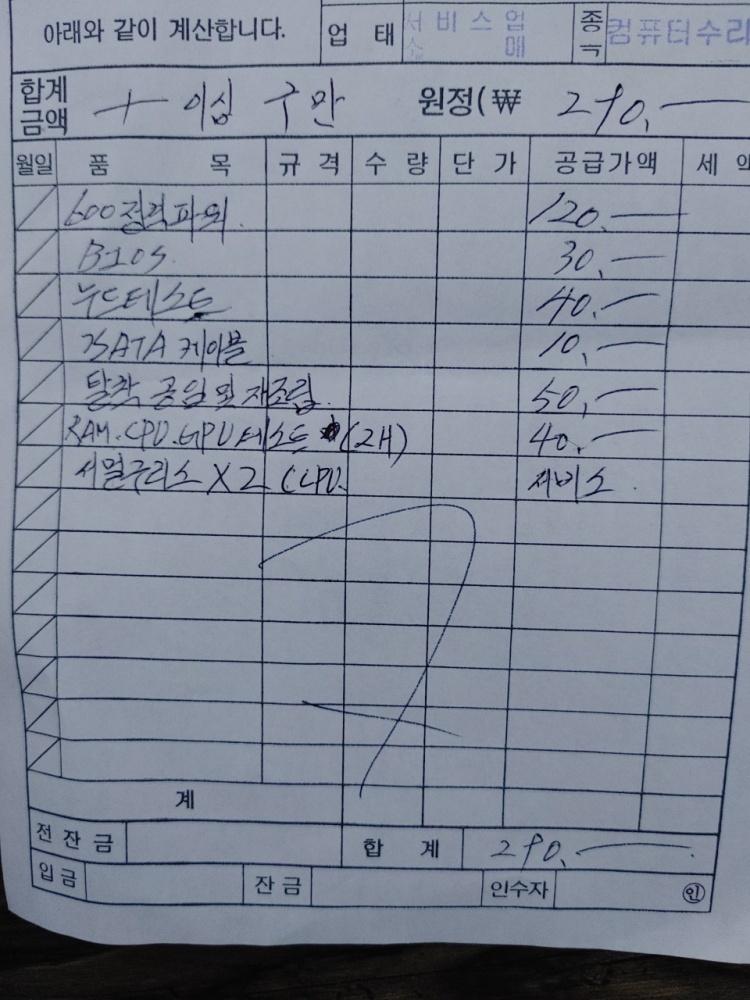 아래와 같이 계산합니다. 업 태 서비스업 종
소 매 컴퓨터수리
합계금액 이십구만 원정(₩ 290.—
월일 품 목 규 격 수 량 단 가 공급가액 세
600정격파워. 120.—
BIOS. 30.—
누드테스트 40.—
SATA 케이블 10.—
탈착 공임 및 재조립. 50.—
RAM.CPU.GPU 테스트 (2H) 40.—
서멀구리스 X2 (CPU. 서비스.
계
전잔금 합 계 290.—
입금 잔금 인수자 ㊞